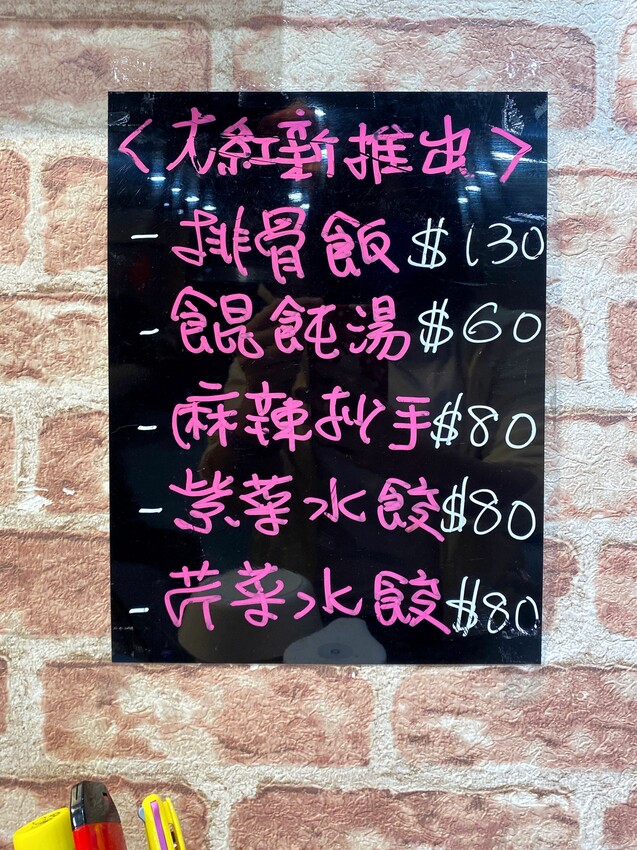 <大紅新推出>
- 排骨飯 $130
- 餛飩湯 $60
- 麻辣抄手 $80
- 紫菜水餃 $80
- 芹菜水餃 $80